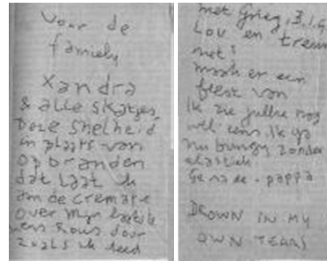 Voor de
family
Xandra
& alle skatjes,
Deze snelheid
in plaats van
opbranden
dat laat ik
aan de crematie
over mijn laatste
wens Rous door
zoals ik deed
met Grieg, 3.1.9
Lou en treur
niet!
maak er een
feest van
Ik zie jullie nog
wel eens. Ik ga
nu bungy zonder
elastiek
Genade. pappa
DROWN IN MY
OWN TEARS